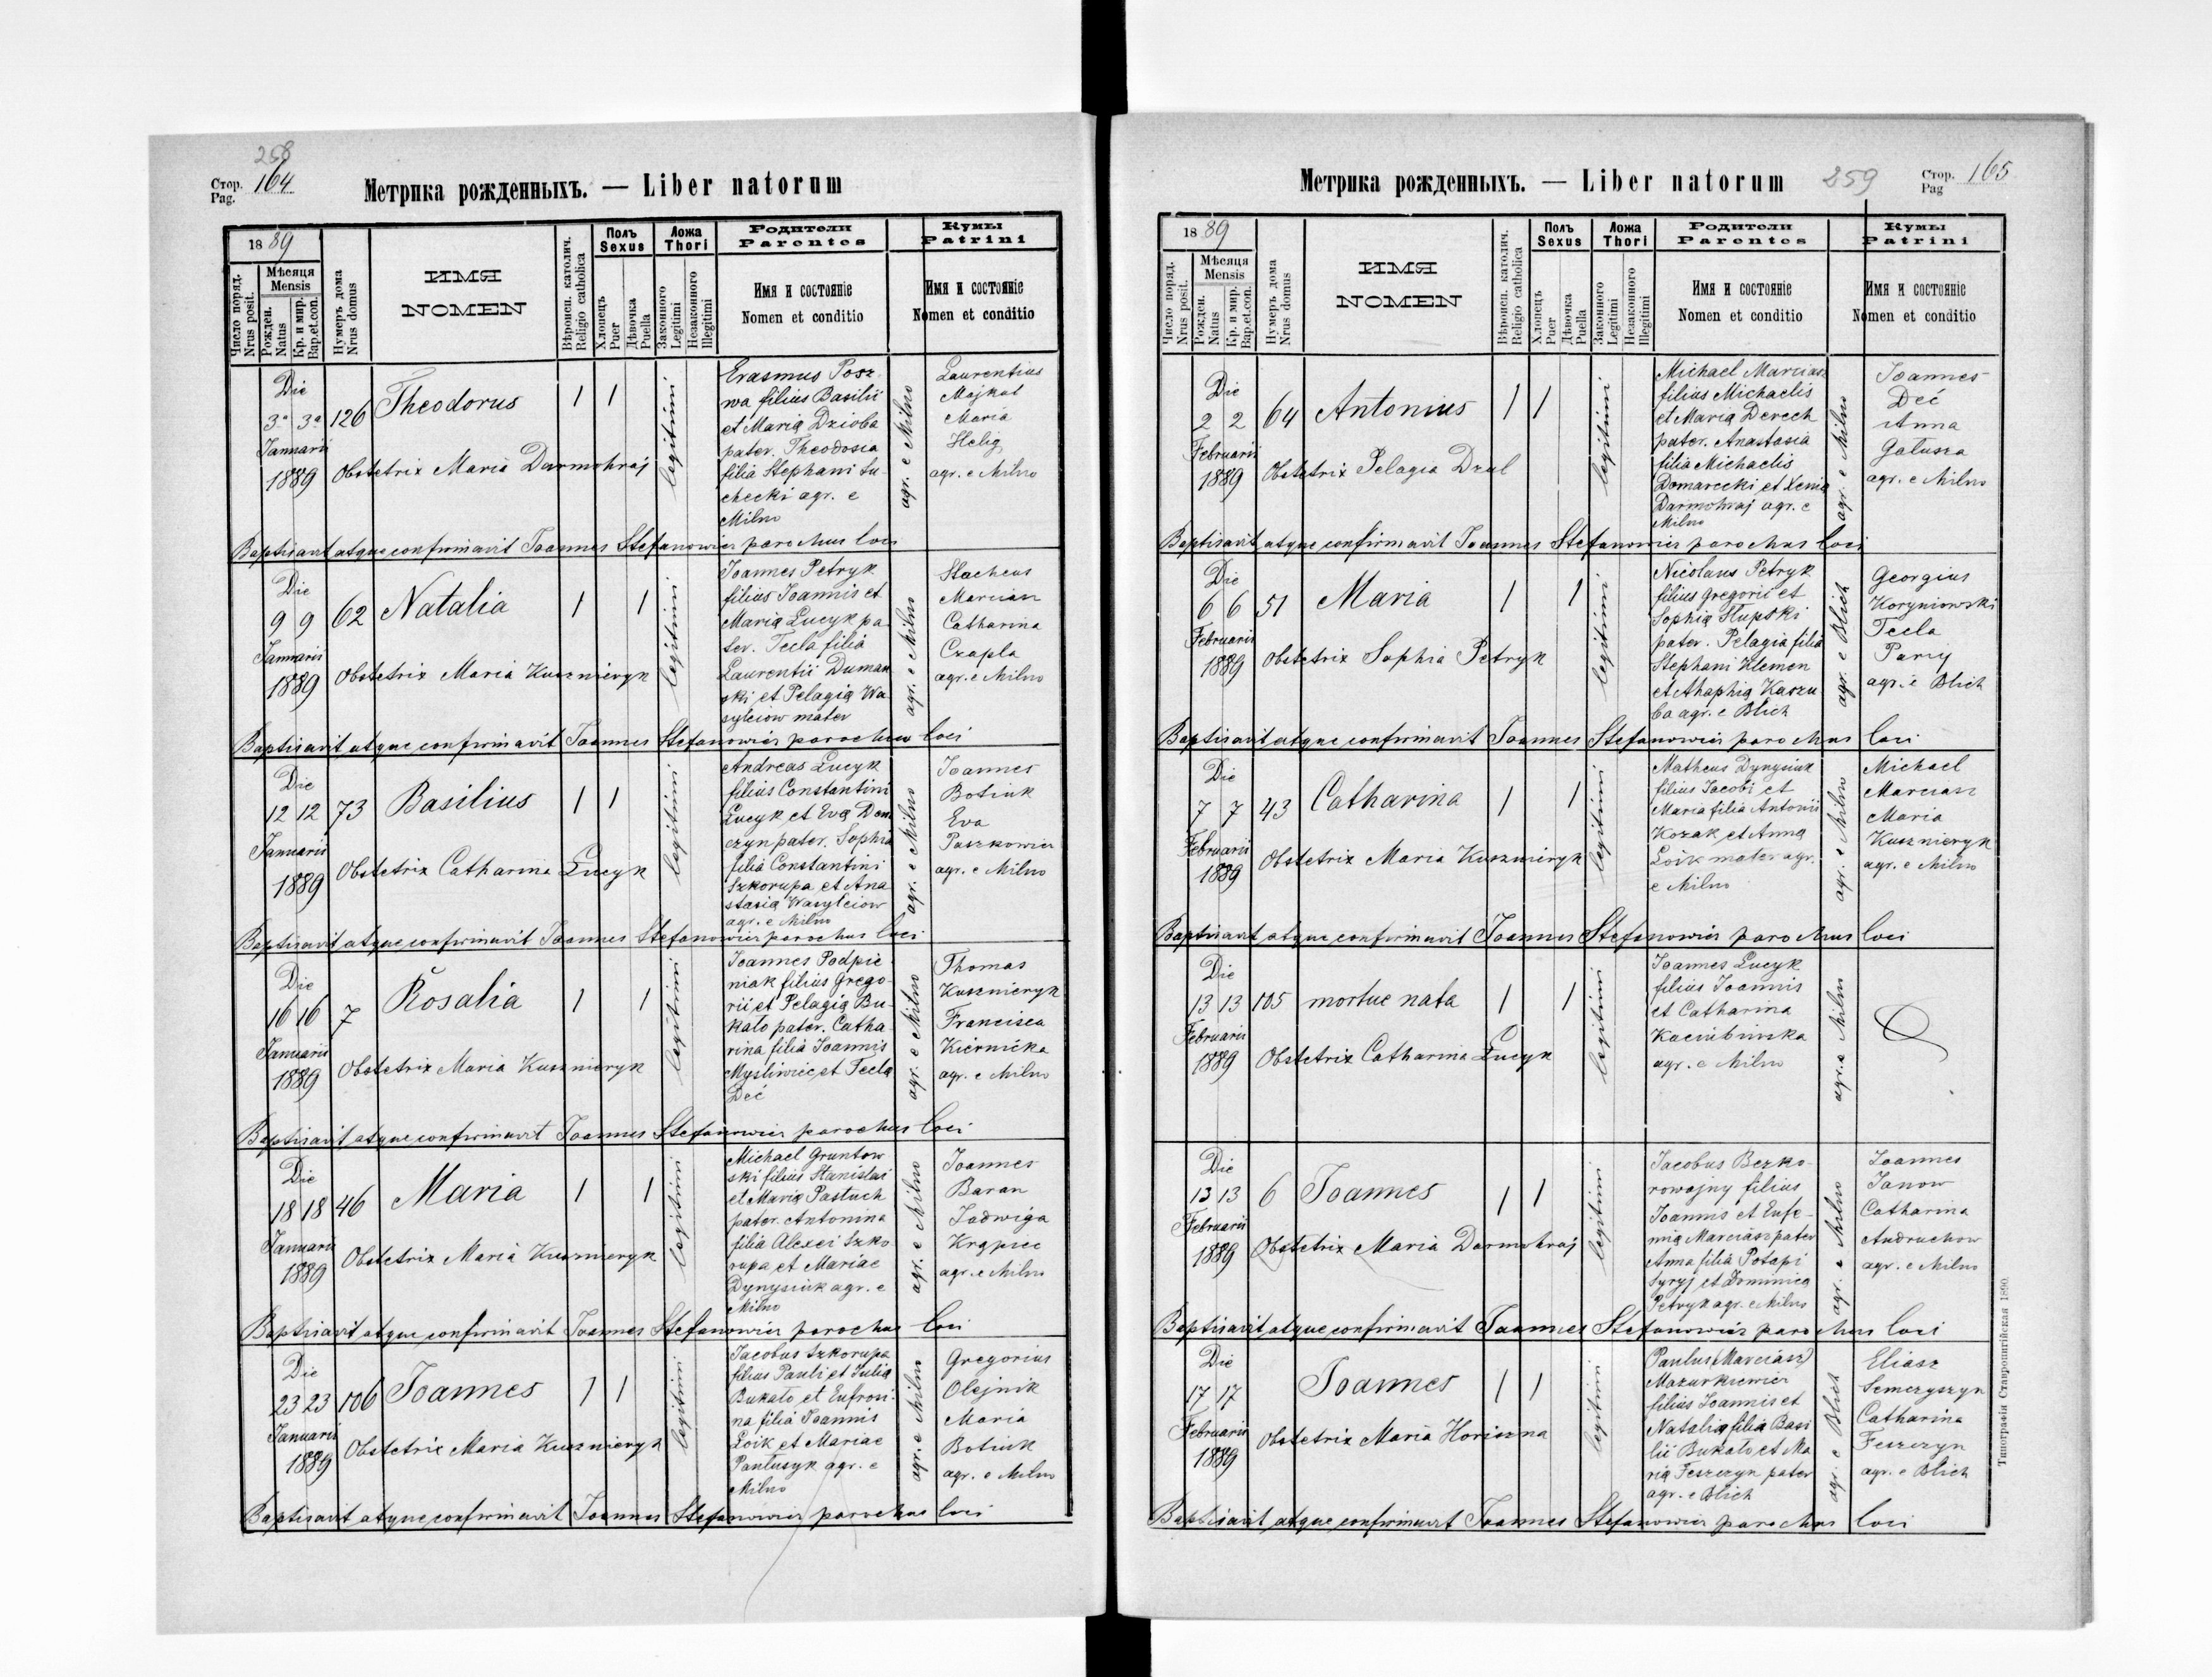 258
Стор. 164
Pag.
Метрика рожденныхъ. — Liber natorum
1889
Число поряд.
Nrus posit.
Мѣсяця
Mensis
Рожден.
Natus
Кр. и мир.
Bap.et.con.
Нумеръ дома
Nrus domus
ИМЯ
NOMEN
Вѣроисп. католич.
Religio catholica
Полъ
Sexus
Хлопецъ
Puer
Дѣвочка
Puella
Ложа
Thori
Законного
Legitimi
Незаконного
Illegitimi
Родители
Parentes
Имя и состояніе
Nomen et conditio
Кумы
Patrini
Имя и состояніе
Nomen et conditio
Die
3a 3a 126 Theodorus 1 1 legitimi
Januarii
1889 Obstetrix Maria Darmohraj
Erasmus Posz-
wa filius Basilii
et Maria Dzioba
pater. Theodosia
filia Stephani Su-
checki agr. e
Milno
agr. e Milno
Laurentius
Majkut
Maria
Helig
agr. e Milno
Baptisavit atque confirmavit Joannes Stefanowicz parochus loci
Die
9 9 62 Natalia 1 1 legitimi
Januarii
1889 Obstetrix Maria Kusznieryk
Joannes Petryk
filius Joannis et
Maria Lucyk pa-
ter. Tecla filia
Laurentii Duman
ski et Pelagia Wa
sylciow mater
agr. e Milno
Stacheus
Marcian
Catharina
Czapla
agr. e Milno
Baptisavit atque confirmavit Joannes Stefanowicz parochus loci
Die
12 12 73 Basilius 1 1 legitimi
Januarii
1889 Obstetrix Catharina Lucyk
Andreas Lucyk
filius Constantini
Lucyk et Eva Dem
czyn pater. Sophia
filia Constantini
Szkorupa et Ana
stasia Wasylciow
agr. e Milno
agr. e Milno
Joannes
Botiuk
Eva
Paszkowicz
agr. e Milno
Baptisavit atque confirmavit Joannes Stefanowicz parochus loci
Die
16 16 7 Rosalia 1 1 legitimi
Januarii
1889 Obstetrix Maria Kusznieryk
Joannes Podpie
niak filius Grego-
rii et Pelagia Bu-
kato pater. Catha-
rina filia Joannis
Mysliwiec et Tecla
Deć
agr. e Milno
Thomas
Kusznieryk
Francisca
Kiernicka
agr. e Milno
Baptisavit atque confirmavit Joannes Stefanowicz parochus loci
Die
18 18 46 Maria 1 1 legitimi
Januarii
1889 Obstetrix Maria Kusznieryk
Michael Gruntow
ski filius Stanislai
et Maria Pastuch
pater. Antonina
filia Alexei Szko
rupa et Mariae
Dynysiuk agr. e
Milno
agr. e Milno
Joannes
Baran
Jadwiga
Krąpiec
agr. e Milno
Baptisavit atque confirmavit Joannes Stefanowicz parochus loci
Die
23 23 106 Joannes 1 1 legitimi
Januarii
1889 Obstetrix Maria Kusznieryk
Jacobus Szkorupa
filius Pauli et Julia
Bukato et Eufrosi-
na filia Joannis
Loik et Mariae
Pantusyk agr. e
Milno
agr. e Milno
Gregorius
Olejnik
Maria
Botiuk
agr. e Milno
Baptisavit atque confirmavit Joannes Stefanowicz parochus loci
Метрика рожденныхъ. — Liber natorum
259
Стор. 165
Pag
1889
Число поряд.
Nrus posit.
Мѣсяця
Mensis
Рожден.
Natus
Кр. и мир.
Bap.et.con.
Нумеръ дома
Nrus domus
ИМЯ
NOMEN
Вѣроисп. католич.
Religio catholica
Полъ
Sexus
Хлопецъ
Puer
Дѣвочка
Puella
Ложа
Thori
Законного
Legitimi
Незаконного
Illegitimi
Родители
Parentes
Имя и состояніе
Nomen et conditio
Кумы
Patrini
Имя и состояніе
Nomen et conditio
Die
2 2 64 Antonius 1 1 legitimi
Februarii
1889 Obstetrix Pelagia Dzul
Michael Marciasz
filius Michaelis
et Maria Derech
pater. Anastasia
filia Michaelis
Domarecki et Xenia
Darmohraj agr. e
Milno
agr. e Milno
Joannes
Deć
Anna
Galusza
agr. e Milno
Baptisavit atque confirmavit Joannes Stefanowicz parochus loci
Die
6 6 51 Maria 1 1 legitimi
Februarii
1889 Obstetrix Sophia Petryk
Nicolaus Petryk
filius Gregorii et
Sophia Slupski
pater. Pelagia filia
Stephani Klemen
et Ahaphia Kaszu
ba agr. e Blich
agr. e Blich
Georgius
Koryniowski
Tecla
Parij
agr. e Blich
Baptisavit atque confirmavit Joannes Stefanowicz parochus loci
Die
7 7 43 Catharina 1 1 legitimi
Februarii
1889 Obstetrix Maria Kusznieryk
Matheus Dynysiuk
filius Jacobi et
Maria filia Antonii
Kozak et Anna
Loik mater agr.
e Milno
agr. e Milno
Michael
Marciasz
Maria
Kusznieryk
agr. e Milno
Baptisavit atque confirmavit Joannes Stefanowicz parochus loci
Die
13 13 105 mortue nata 1 1 legitimi
Februarii
1889 Obstetrix Catharina Lucyk
Joannes Lucyk
filius Joannis
et Catharina
agr. e Milno
agr. e Milno
Die
13 13 6 Joannes 1 1 legitimi
Februarii
1889 Obstetrix Maria Darmohraj
Jacobus Bezko-
rowajny filius
Joannis et Eufe-
mia Marciasz pater
Anna filia Potapi
Syryj et Dominica
Petryk agr. e Milno
agr. e Milno
Joannes
Janow
Catharina
Andruchow
agr. e Milno
Baptisavit atque confirmavit Joannes Stefanowicz parochus loci
Die
17 17 Joannes 1 1 legitimi
Februarii
1889 Obstetrix Maria Horiszna
Paulus (Marciasz)
Mazurkiewicz
filius Joannis et
Natalia filia Basi
lii Bukato et Ma
ria Feszczyn pater
agr. e Blich
agr. e Blich
Eliasz
Semczyszyn
Catharina
Feszczyn
agr. e Blich
Baptisavit atque confirmavit Joannes Stefanowicz parochus loci
Типографія Ставропигійская 1890.